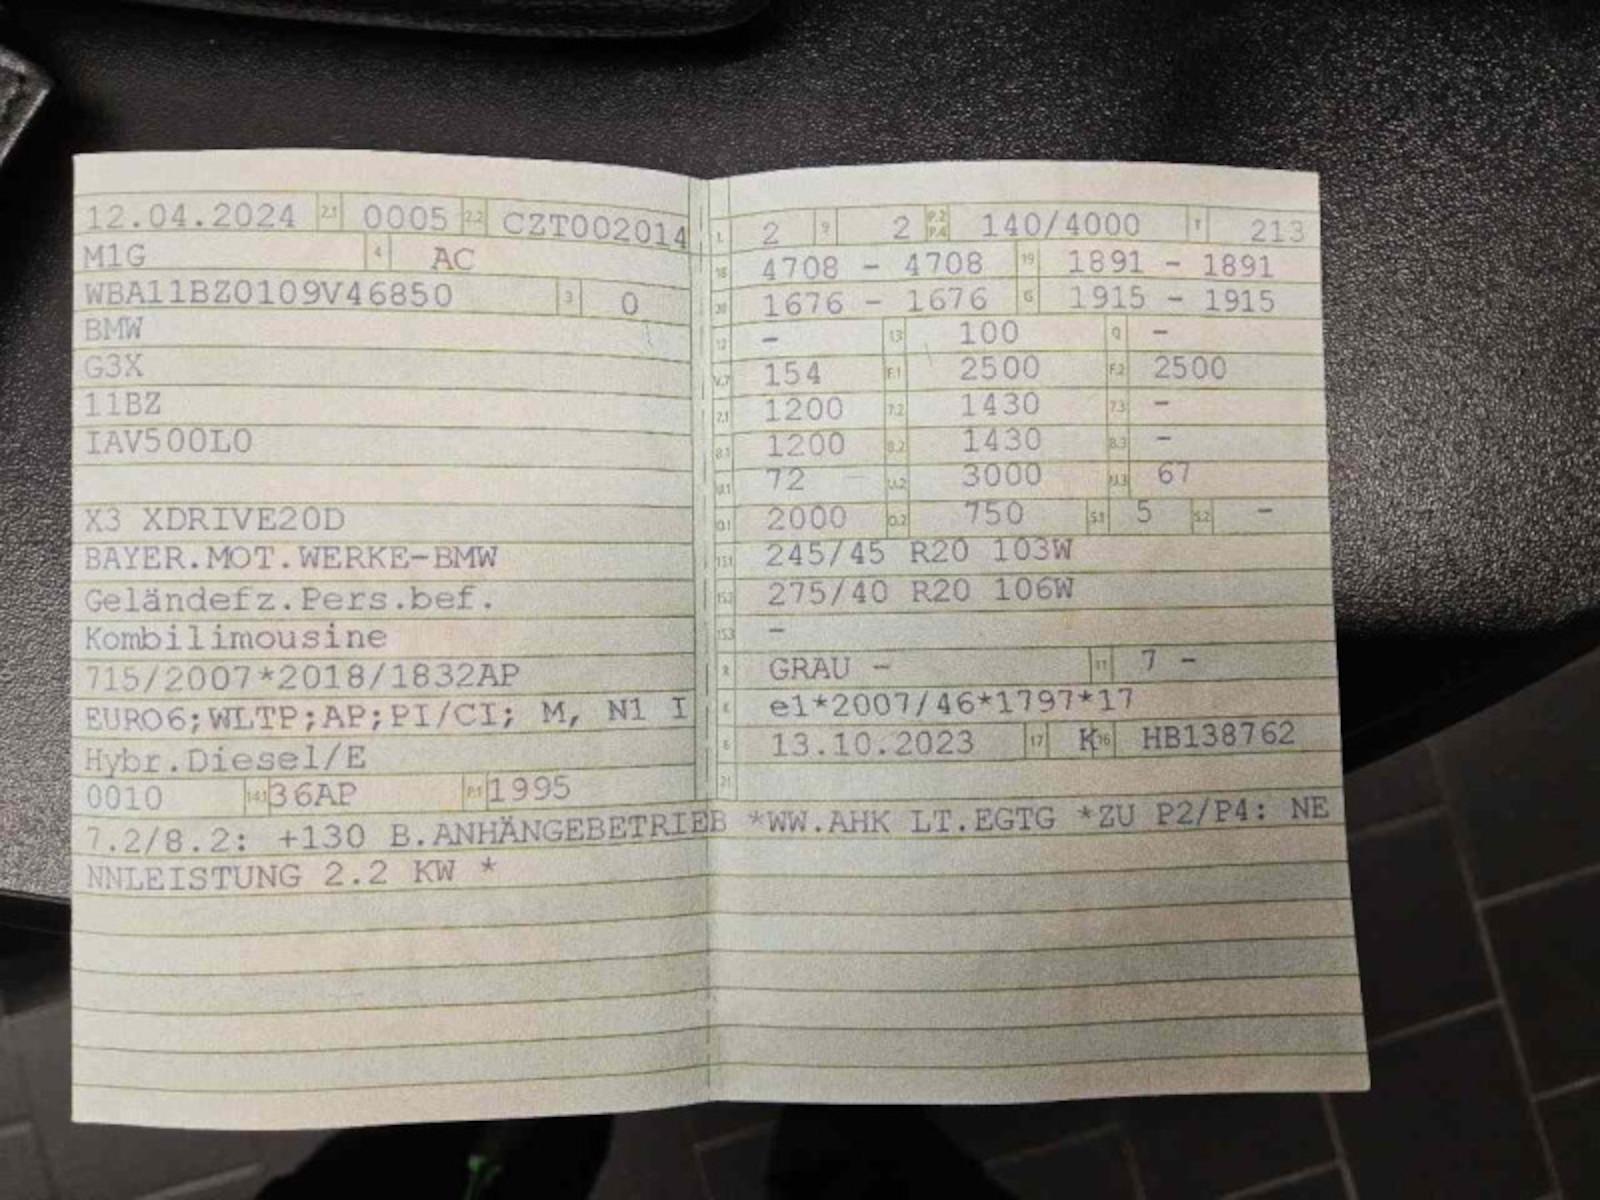 12.04.2024 2.1 0005 2.2 CZT002014
M1G 4 AC
WBA11BZ0109V46850 3 0
BMW
G3X
11BZ
IAV500L0
X3 XDRIVE20D
BAYER.MOT.WERKE-BMW
Geländefz.Pers.bef.
Kombilimousine
715/2007*2018/1832AP
EURO6;WLTP;AP;PI/CI; M, N1 I
Hybr.Diesel/E
0010 14.1 36AP P.1 1995
L 2 9 2 P.2 P.4 140/4000 T 213
18 4708 - 4708 19 1891 - 1891
20 1676 - 1676 G 1915 - 1915
12 - 13 100 Q -
V.7 154 F.1 2500 F.2 2500
7.1 1200 7.2 1430 7.3 -
8.1 1200 8.2 1430 8.3 -
U.1 72 U.2 3000 U.3 67
O.1 2000 O.2 750 S.1 5 S.2 -
15.1 245/45 R20 103W
15.2 275/40 R20 106W
15.3 -
R GRAU - 11 7 -
K e1*2007/46*1797*17
6 13.10.2023 17 K 16 HB138762
21
7.2/8.2: +130 B.ANHÄNGEBETRIEB *WW.AHK LT.EGTG *ZU P2/P4: NE
NNLEISTUNG 2.2 KW *